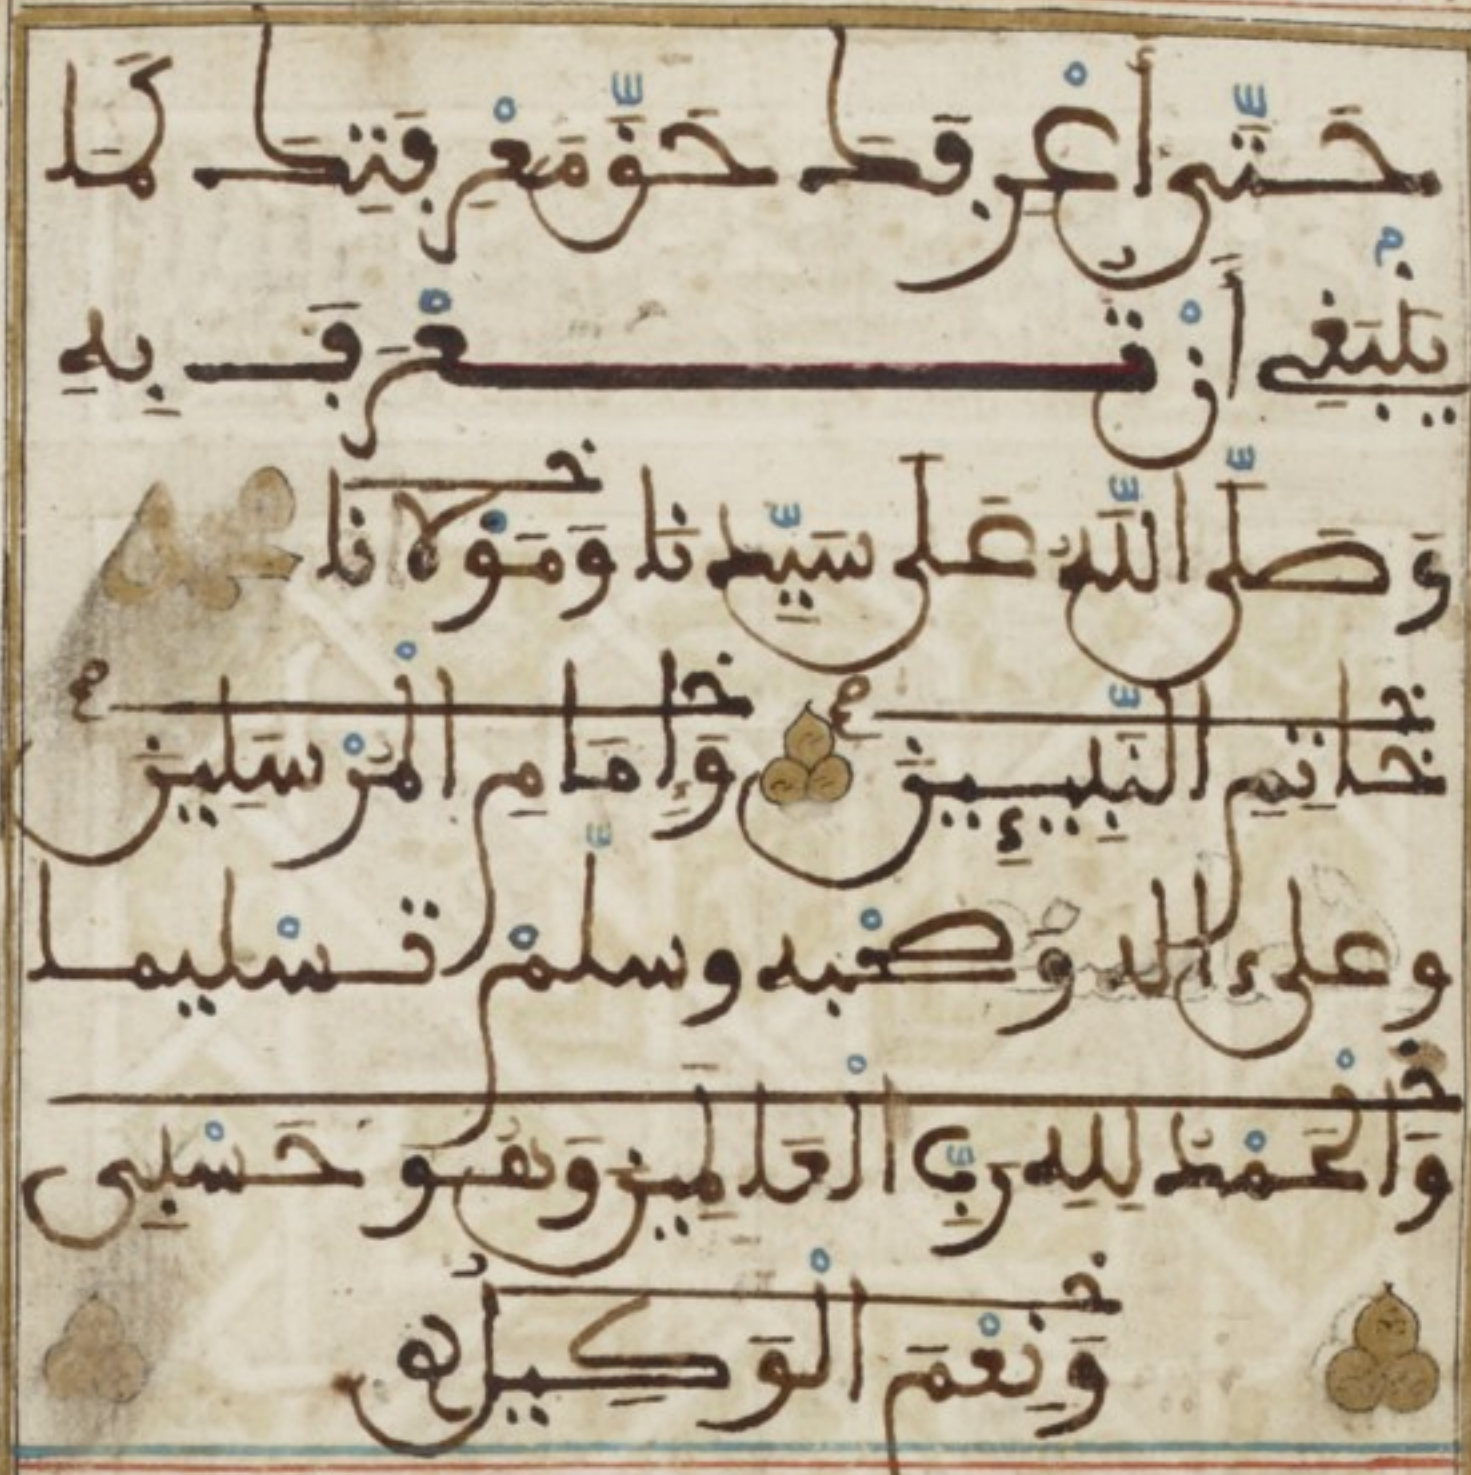 حَتَّى أَعْرِفَكَ حَقَّ مَعْرِفَتِكَ كَمَا
يَنْبَغِي أَنْ تُعْرَفَ بِهِ
وَصَلَّى اللَّهُ عَلَى سَيِّدِنَا وَمَوْلَانَا محمد
خَاتِمِ النَّبِيئِينَ وَإِمَامِ الْمُرْسَلِينَ
وعلى ءاله وَصحْبه وسلمْ تسْليما
وَالْحَمْدُ لِلهِ رَبِّ الْعَالَمِينَ وَهُوَ حَسْبِي
وَنِعْمَ الْوَكِيلُ